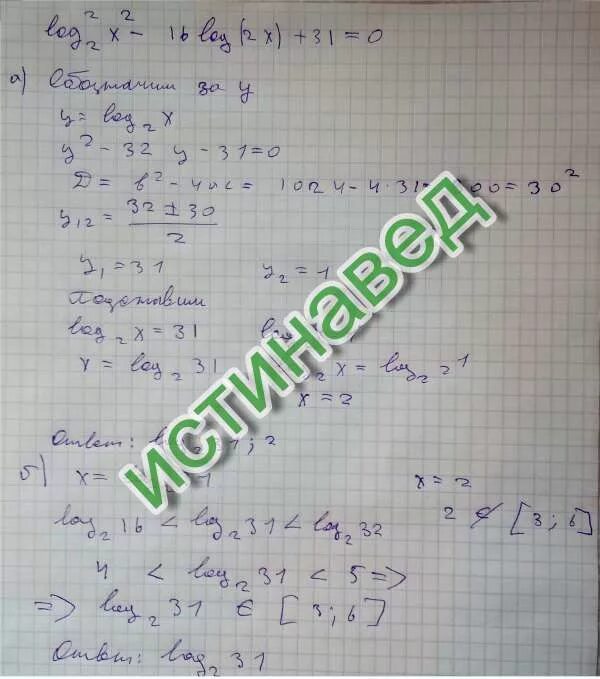 log₂²x² - 16 log(2x) + 31 = 0
а) Обозначим за y
y = log₂x
y² - 32 y - 31 = 0
D = b² - 4ac = 1024 - 4·31 00 = 30²
y₁₂ = (32 ± 30)/2
y₁ = 31 y₂ = 1
Подставим
log₂x = 31
x = log₂31 x = log₂2¹
x = 2
Ответ: 31; 2
б) x = 1 x = 2
log₂16 < log₂31 < log₂32 2 ∉ [3; 6]
4 < log₂31 < 5 =>
=> log₂31 ∈ [3; 6]
Ответ: log₂31
ИСТИНАВЕД